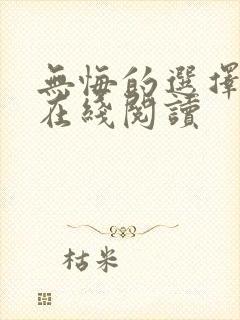 無悔的選擇
在綫閱讀
枯米